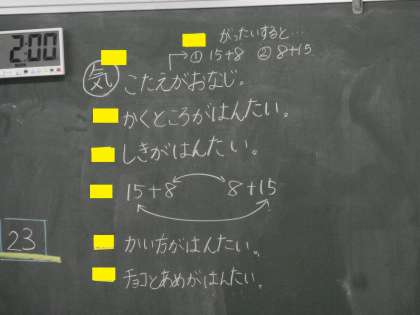 2:00
がったいすると…
①15+8 ②8+15
気 こたえがおなじ。
かくところがはんたい。
しきがはんたい。
15+8 8+15
23
かい方がはんたい。
チョコとあめがはんたい。